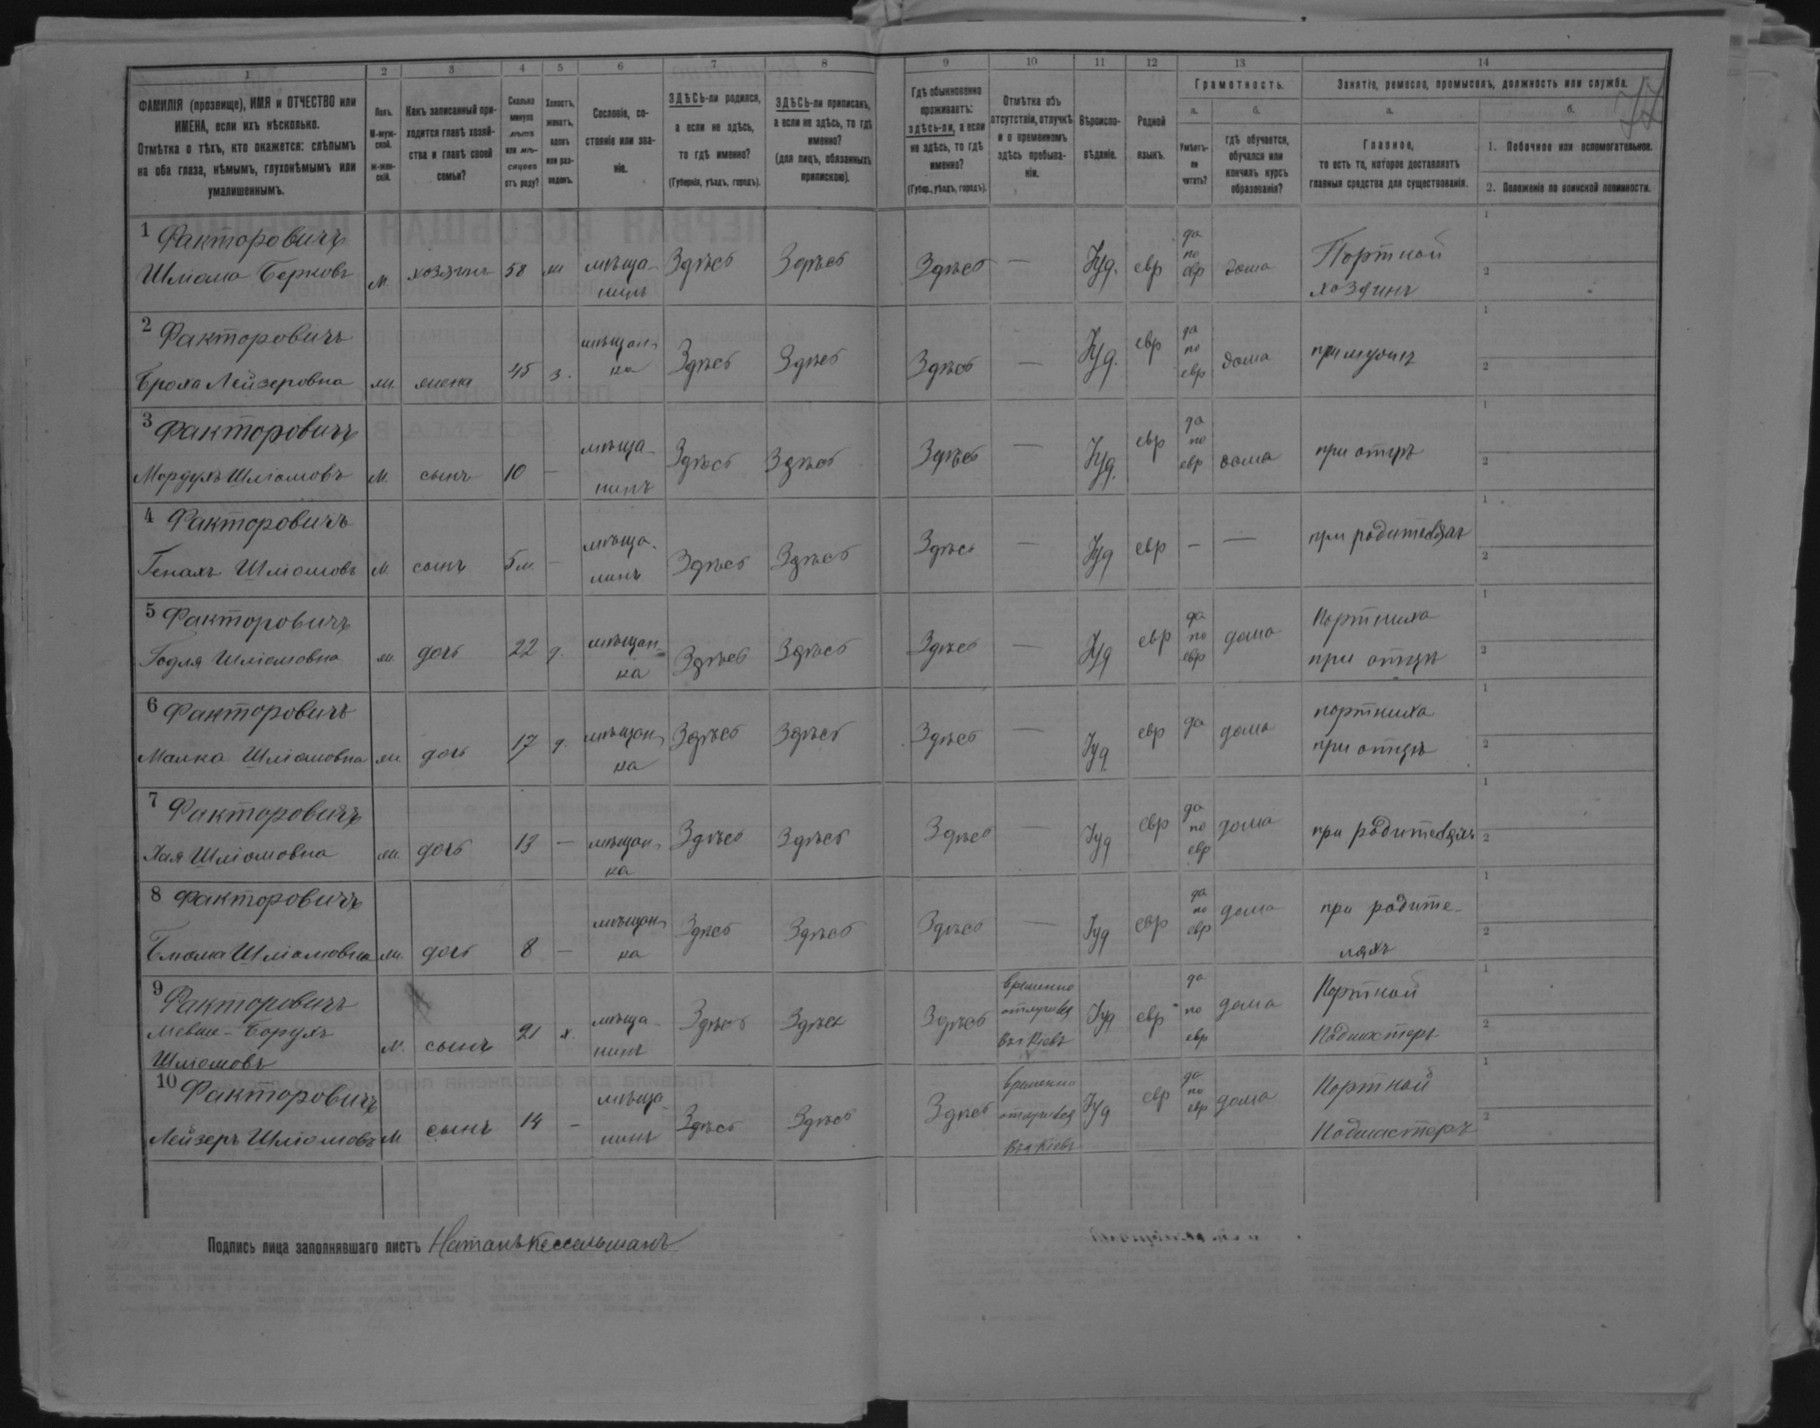 1 2 3 4 5 6 7 8 9 10 11 12 13 14
ФАМИЛІЯ (прозвище), ИМЯ и ОТЧЕСТВО или ИМЕНА, если ихъ нѣсколько.
Отмѣтка о тѣхъ, кто окажется: слѣпымъ на оба глаза, нѣмымъ, глухонѣмымъ или умалишеннымъ.
Полъ.
М-мужской.
Ж-женскій.
Какъ записанный приходится главѣ хозяйства и главѣ своей семьи?
Сколько минуло лѣтъ или мѣсяцевъ отъ роду?
Холостъ, женатъ, вдовъ или разведенъ.
Сословіе, состояніе или званіе.
ЗДѢСЬ-ли родился, а если не здѣсь, то гдѣ именно?
(Губернія, уѣздъ, городъ).
ЗДѢСЬ-ли приписанъ, а если не здѣсь, то гдѣ именно?
(для лицъ, обязанныхъ припискою).
Гдѣ обыкновенно проживаетъ: здѣсь-ли, а если не здѣсь, то гдѣ именно?
(Губер., уѣздъ, городъ).
Отмѣтка объ отсутствіи, отлучкѣ и о временномъ здѣсь пребываніи.
Вѣроисповѣданіе.
Родной языкъ.
Грамотность.
а. б.
Умѣетъ-ли читать?
гдѣ обучается, обучался или кончилъ курсъ образованія?
Занятіе, ремесло, промыселъ, должность или служба.
а. б.
Главное,
то есть то, которое доставляетъ главныя средства для существованія.
1. Побочное или вспомогательное.
2. Положеніе по воинской повинности.
1 Факторовичъ
Шліома Берковъ М. хозяинъ 58 ж мѣщанинъ Здѣсь Здѣсь Здѣсь — Іуд. евр да по евр дома Портной хозяинъ
2 Факторовичъ
Броха Лейзеровна ж. жена 45 з. мѣщанка Здѣсь Здѣсь Здѣсь — Іуд. евр да по евр дома при мужѣ
3 Факторовичъ
Мордухъ Шліомовъ М. сынъ 10 — мѣщанинъ Здѣсь Здѣсь Здѣсь — Іуд. евр да по евр дома при отцѣ
4 Факторовичъ
Генахъ Шліомовъ М. сынъ 5 м. — мѣщанинъ Здѣсь Здѣсь Здѣсь — Іуд евр — — при родителяхъ
5 Факторовичъ
Годля Шліомовна ж. дочь 22 д. мѣщанка Здѣсь Здѣсь Здѣсь — Іуд евр да по евр дома Портниха при отцѣ
6 Факторовичъ
Малка Шліомовна ж. дочь 17 д. мѣщанка Здѣсь Здѣсь Здѣсь — Іуд евр да дома портниха при отцѣ
7 Факторовичъ
Хая Шліомовна ж. дочь 13 — мѣщанка Здѣсь Здѣсь Здѣсь — Іуд евр да по евр дома при родителяхъ
8 Факторовичъ
Блюма Шліомовна ж. дочь 8 — мѣщанка Здѣсь Здѣсь Здѣсь — Іуд евр да по евр дома при родителяхъ
9 Факторовичъ
Борухъ Шліомовъ М. сынъ 21 х. мѣщанинъ Здѣсь Здѣсь Здѣсь временно Кіевъ Іуд евр да по евр дома Портной Подмастеръ
10 Факторовичъ
Лейзеръ Шліомовъ М сынъ 14 — мѣщанинъ Здѣсь Здѣсь Здѣсь временно Кіевъ Іуд евр да по евр дома Портной Подмастеръ
Подпись лица заполнявшаго листъ Натанъ Кессельманъ